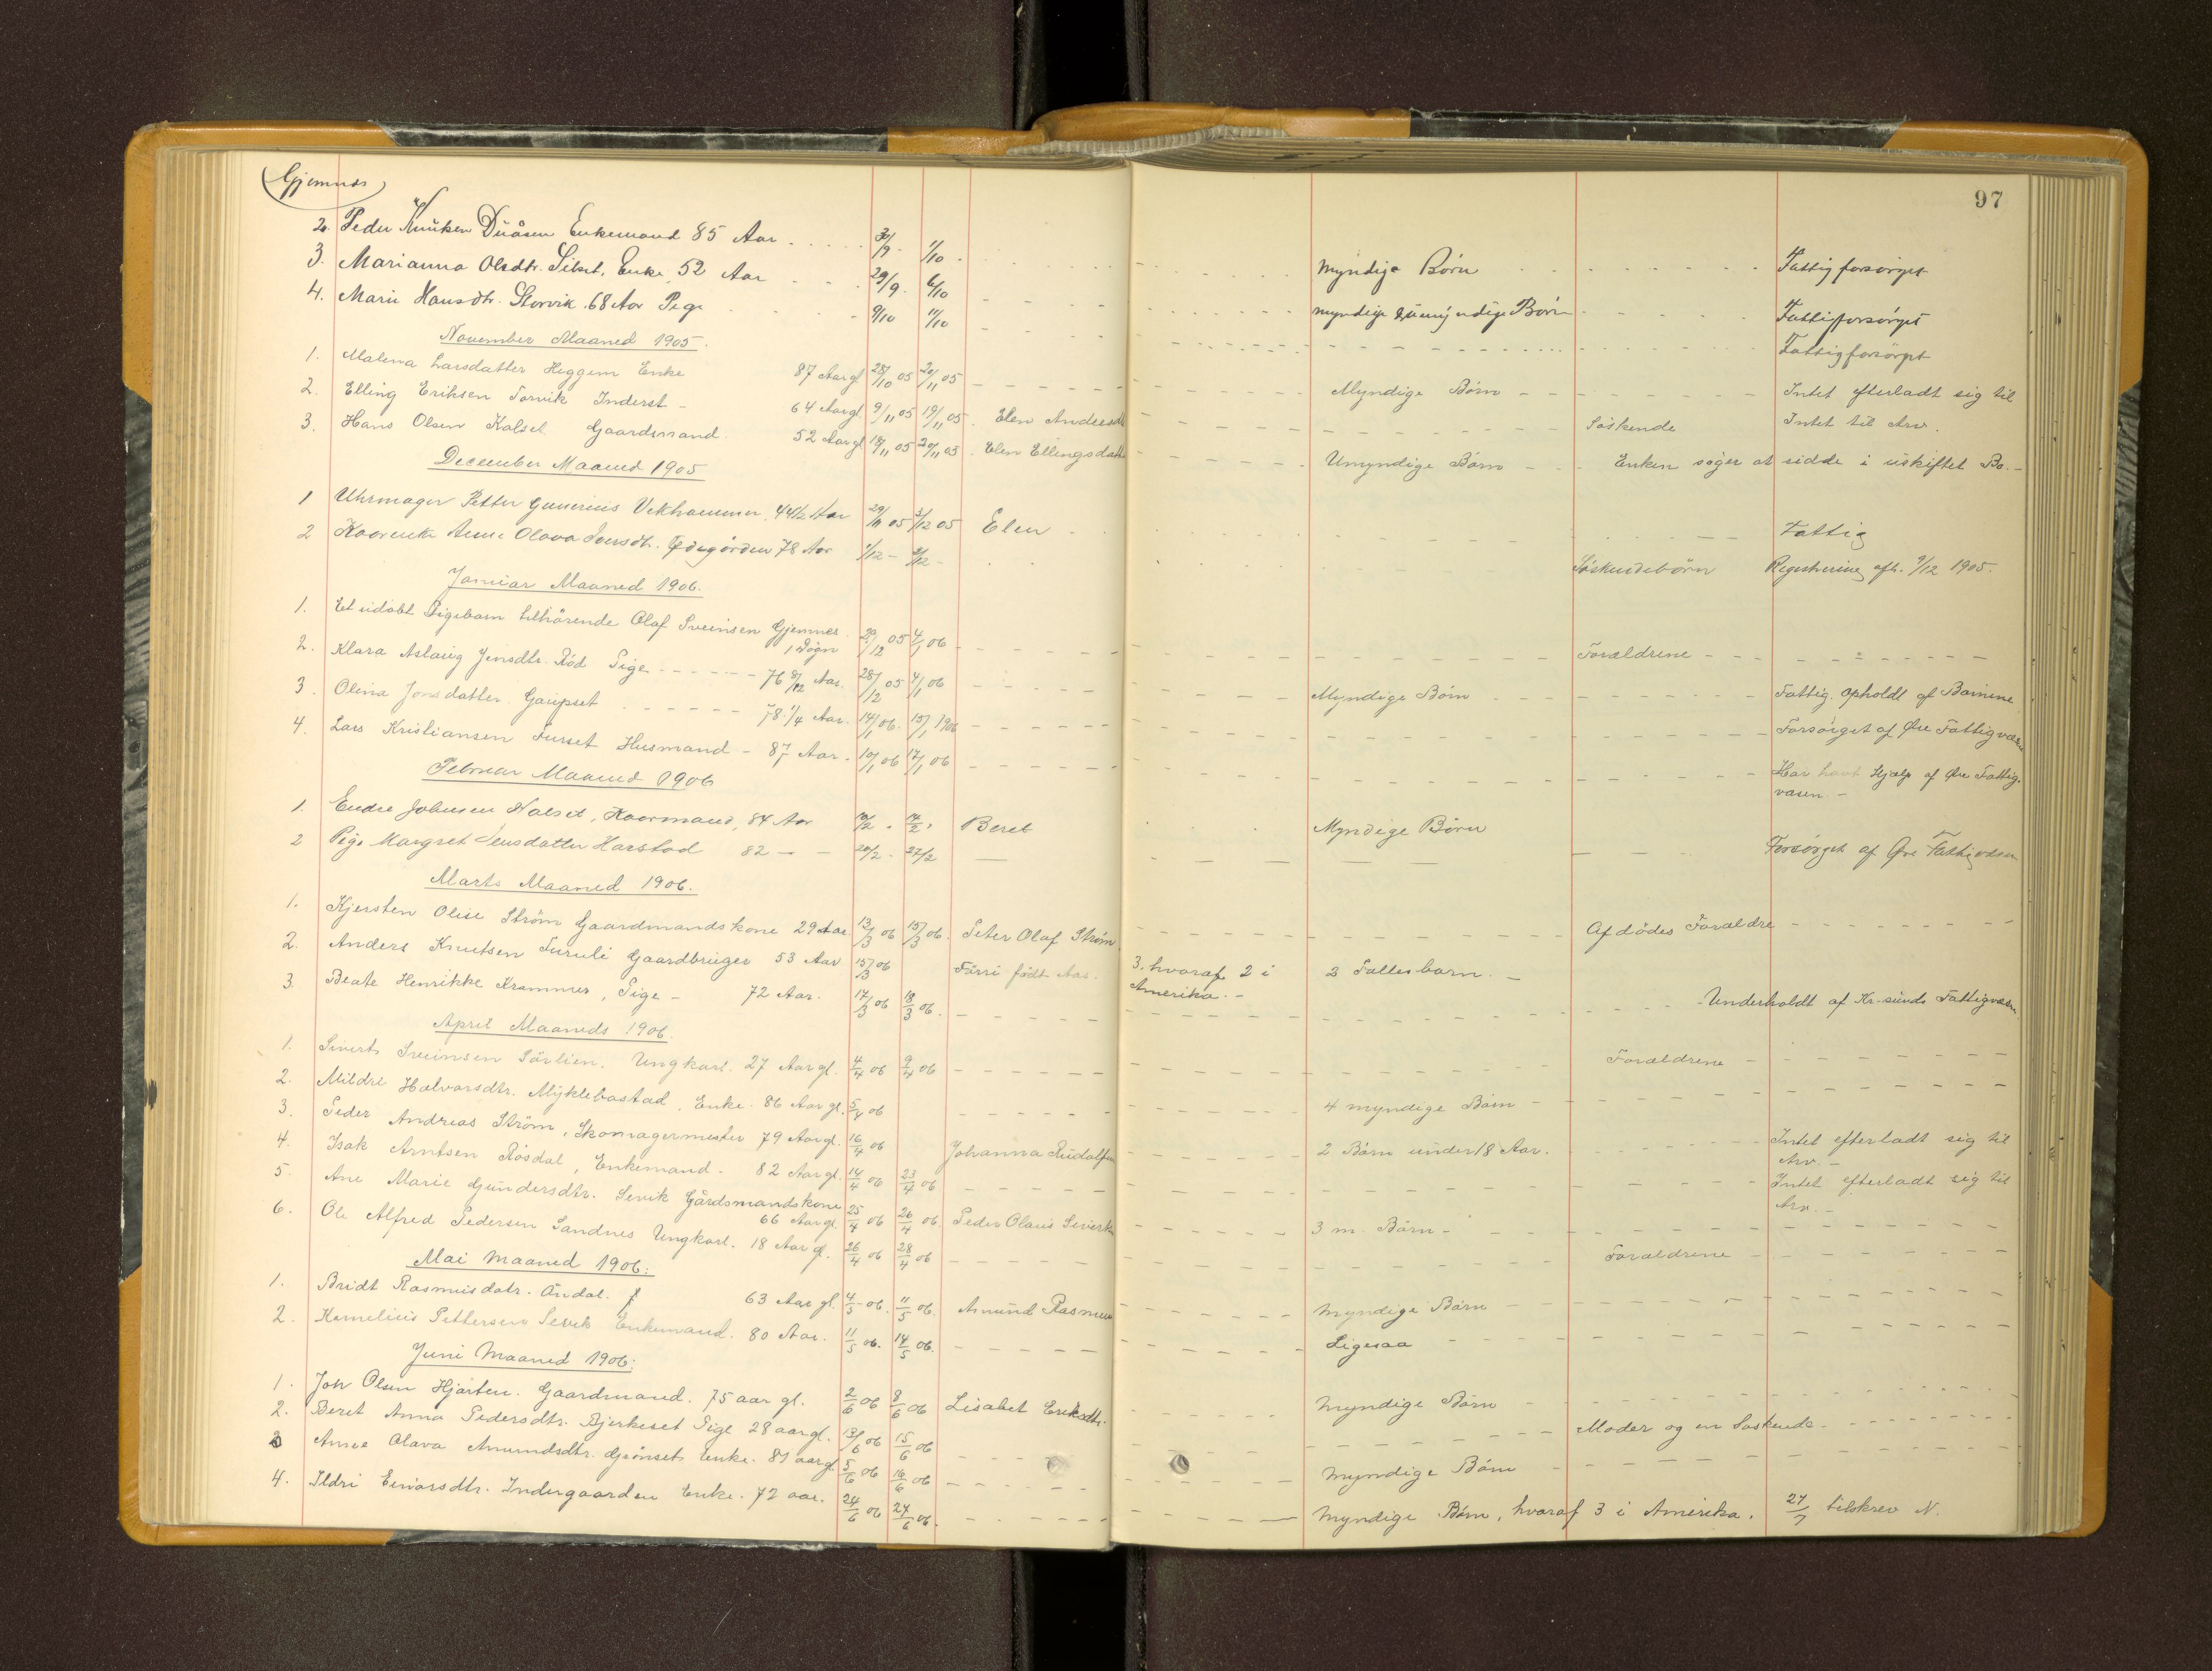 Gjemnes
97
2. Peder Knutsen Duåsen Enkemand 85 Aar 30/9. 1/10. Myndige Børn Fattigforsørget
3. Marianna Olsdtr. Enke, 52 Aar 29/9. 6/10 myndige & umyndige Børn Fattigforsørget
4. Marie Hansdtr. Storvik 68 Aar Pige 9/10 11/10 Fattigforsørget
November Maaned 1905.
1. Malena Larsdatter Heggem Enke 87 Aar gl 28/10 05 20/11 05 Myndige Børn Intet efterladt sig til
2. Elling Eriksen Torvik Inderst 64 Aar gl. 9/11 05 19/11 05. Elen Andersdtr Søskende Intet til Arv.
3. Hans Olsen Kalset Gaardmand. 52 Aar gl 18/11 05 20/11 05. Elen Ellingsdatt Umyndige Børn Enken søger at sidde i uskiftet Bo.
December Maaned 1905
1 Uhrmager Petter Gunerius Vekhammer, 44 1/2 Aar 29/11 05 3/12 05 Elen Fattig
2 Kaarenke Anne Olava Iversdtr. Ødegården 78 Aar 1/12 - 9/12 - Søskendebørn Registrering afh. 9/12 1905.
Januar Maaned 1906.
1. Et udøbt Pigebarn tilhørende Olaf Sveinsen Gjemnes 1 Døgn 29/12 05 4/1 06 Forældrene
2. Klara Aslaug Jensdtr. Rød Pige 76 8/12 Aar. 28/12 05 4/1 06 Myndige Børn Fattig. opholdt af Børnene
3. Olina Jonsdatter Gaupset 78 1/4 Aar. 14/1 06. 15/1 1906 Forsørget af Øre Fattigvæsen
4. Lars Kristiansen Furset Husmand - 87 Aar. 10/1 06 17/1 06 Har havt Hjælp af Øre Fattig-
væsen. -
Februar Maaned 1906
1. Endre Johnsen Kalset, Kaarmand, 84 Aar 10/2. 14/2. Beret Myndige Børn
2 Pige Margret Jensdatter Harstad 82 - - 20/2. 27/2 Forsørget af Øre Fattigvæsen
Marts Maaned 1906.
1. Kjersten Olise Strøm Gaardmandskone 29 Aar 12/3 06 15/3 06. Peter Olaf Strøm Afdødes Forældre
2. Anders Knutsen Furuli Gaardbruger 53 Aar 15/3 06 født Aas. 3. hvoraf 2 i 2 Fællesbarn.
Amerika. -
3. Beate Henrikke Krammer, Pige - 72 Aar. 17/3 06 18/3 06. Underholdt af Kr.sunds Fattigvæsen.
April Maaneds 1906.
1. Siverts Sveinsen Sørlien. Ungkarl. 27 Aar gl. 4/4 06 9/4 06 Forældrene
2. Mildri Halvarsdtr. Myklebostad, Enke. 86 Aar gl. 5/4 06 4 myndige Børn
3. Peder Andreas Strøm, Skomagermester 79 Aar gl. 16/4 06 Johanna Rudolfsen 2 Børn under 18 Aar. Intet efterladt sig til
Arv. -
4. Isak Arntsen Røsdal, Enkemand - 82 Aar gl. 14/4 06 23/4 06 Intet efterladt sig til
Arv. -
5. Ane Marie Gundersdtr. Sevik Gårdsmandskone
66 Aar gl. 25/4 06 26/4 06. Peder Olaus Siverts 3 m. Børn -
6. Ole Alfred Pedersen Sandnes Ungkarl. 18 Aar gl. 26/4 06 28/4 06 Forældrene
Mai Maaned 1906.
1. Bridt Rasmusdatr. Øudal. f 63 Aar gl. 4/5 - 06. 11/5 06. Amund Rasmus Myndige Børn
2. Kornelius Pettersen Sevik Enkemand. 80 Aar. 11/5 06. 14/5 06. Ligesaa
Juni Maaned 1906.
1. Joh Olsen Hjorten. Gaardmand. 75 aar gl. 2/6 06 8/6 06 Lisabet Eriksdtr. Myndige Børn
2. Beret Anna Pedersdtr. Bjerkeset Pige 28 aar gl. 13/6 06 15/6 06 Moder og en Søskende
3 Anne Olava Amundsdtr. Grønset Enke. 87 aar gl. 5/6 06 16/6 06 Myndige Børn
4. Ildri Eivarsdtr. Indergaarden Enke. 72 aar. 24/6 06 27/6 06. Myndige Børn, hvoraf 3 i Amerika. 27/7 tilskrev N.